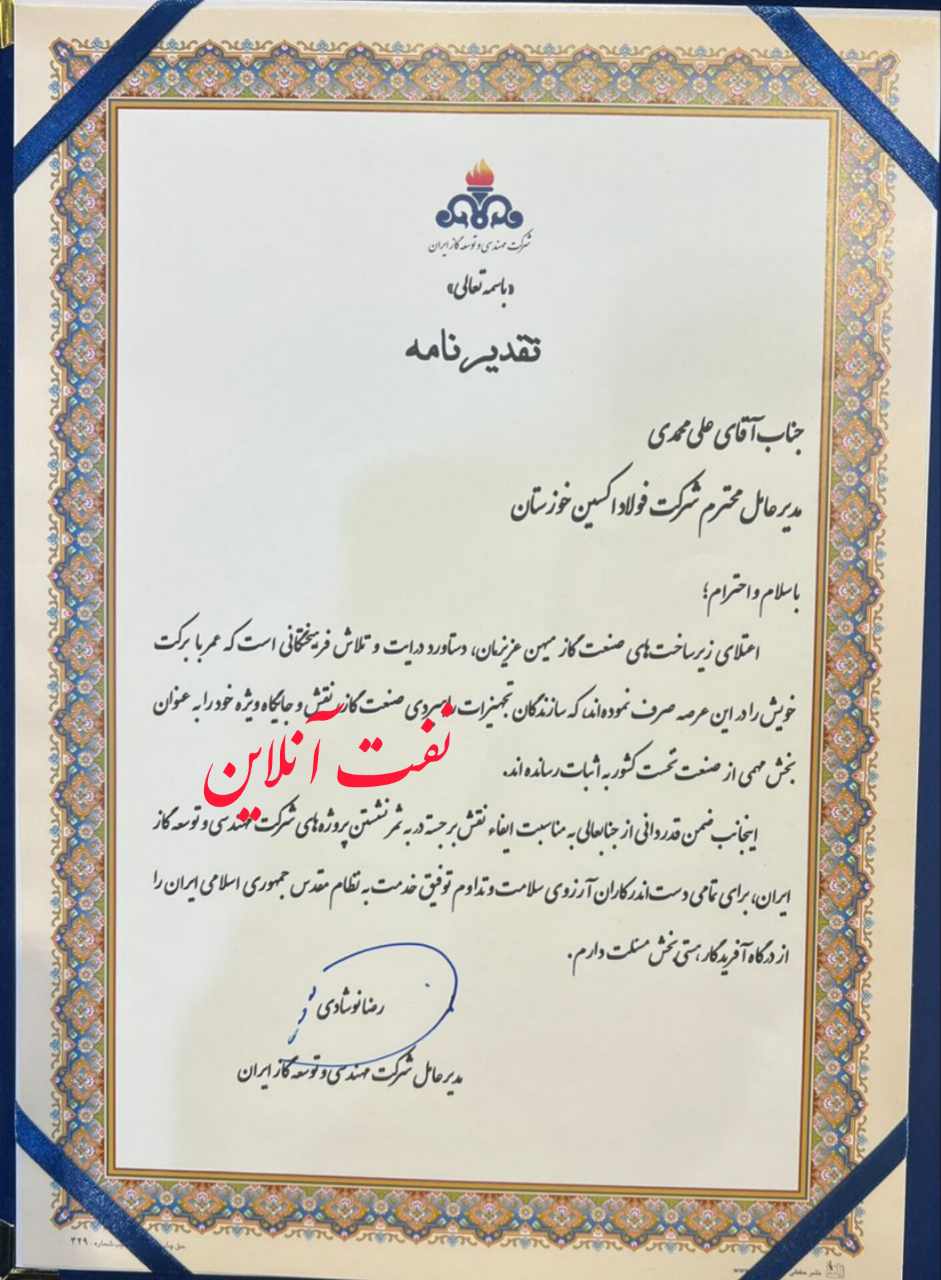 شرکت مهندسی و توسعه گاز ایران
«باسمه تعالی»
تقدیرنامه
جناب آقای علی محمدی
مدیرعامل محترم شرکت فولاد اکسین خوزستان
با سلام و احترام؛
اعتلای زیرساخت‌های صنعت گاز میهن عزیزمان، دستاورد درایت و تلاش فرهیختگانی است که عمر با برکت
خویش را در این عرصه صرف نموده‌اند، که سازندگان تجهیزات راهبردی صنعت گاز، نقش و جایگاه ویژه خود را به عنوان
بخش مهمی از صنعت تحت کشور به اثبات رسانده اند.
نفت آنلاین
اینجانب ضمن قدردانی از جنابعالی به مناسبت ایفاء نقش برجسته در به ثمر نشستن پروژه های شرکت مهندسی و توسعه گاز
ایران، برای تمامی دست‌اندرکاران آرزوی سلامت و تداوم توفیق خدمت به نظام مقدس جمهوری اسلامی ایران را
از درگاه آفریدگار هستی بخش مسئلت دارم.
رضا نوشادی
مدیرعامل شرکت مهندسی و توسعه گاز ایران